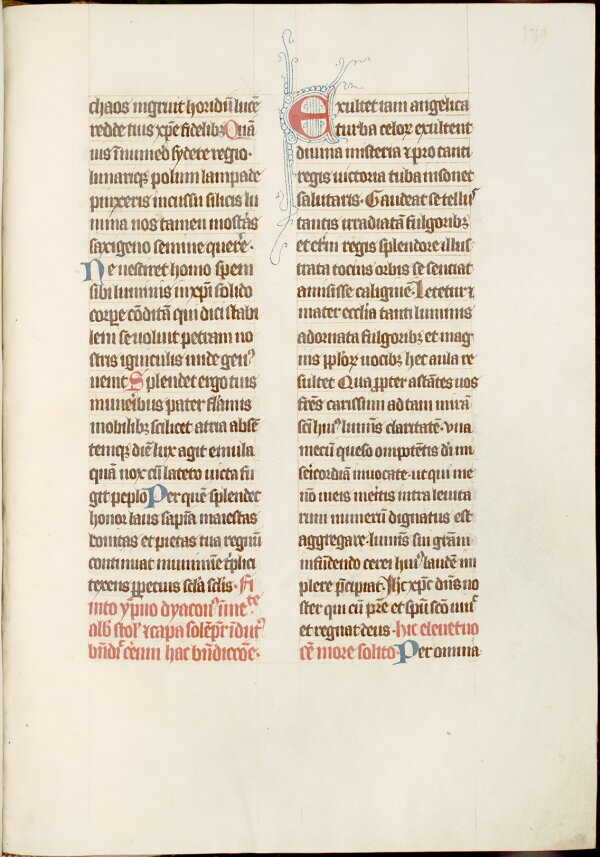 chaos ingruit horidū lucē
redde tuis xp̄e fidelibꝫ Quā
uis īnumeō sydere regio
lunariqꝫ polum lampade
pinxeris incussu silicis lu
mina nos tamen mostᵃs
saxigeno semine querͤ·
Ne nesciret homo spem
sibi luminis in xp̄i solido
corpͤ cōditā qui dici stabi
lem se uoluit petram no
stris igniculis unde genꝰ
uenit Splendet ergo tuis
muneribus pater flāmis
mobilibꝫ scilicet atria absē
temqꝫ diē lux agit emula
quā nox cū lacero uicta fu
git peplo Per quē splendet
honor laus sapīa maiestas
bonitas et pietas tua regnū
continuat numinͤ tͥplici
texens ꝑpetuis sclā sclis· Fi
nito yp̄no dyaconꝰ
albͣ stolͣ ⁊ capa solēpnͥ īdutꝰ
bn̄dͨ cereum hac bn̄diccōe·
Exultet iam angelica
turba celoꝝ exultent
diuina misteria ⁊ pro tanti
regis uictoria tuba insonet
salutaris· Gaudeat se tellꝰ
tantis irradiatā fulgoribꝫ
et etͥni regis splendore illus
trata tocius orbis se senciat
amisisse caliginē· Letetur ⁊
mater ecclīa tanti luminis
adornata fulgoribꝫ et mag
nis pp̄loꝝ uocibꝫ hec aula re
sultet Qua ꝓpter astātes uos
fr̄es carissimi ad tam mirā
sc̄i huiꝰ luminis claritatē· una
mecū queso omp̄otētis dī mi
sericordiā inuocate· ut qui me
nō meis meͥtis intra leuita
rum numerū dignatus est
aggregare· luminͥs sui grām
infundendo cerei huiꝰ laudē im
plere p̄cipiat· Ihc xp̄c dn̄s no
ster qui cū pr̄e et sp̄u sc̄o uiuͥt
et regnat deus· hic eleuet uo
cē more solito· Per omnia